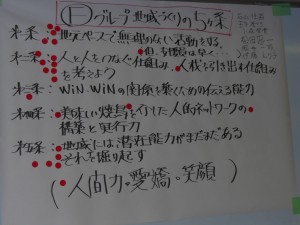 Fグループ 地域づくりの5ヶ条
第一条：地元ペースで無理のない活動をする
但、お機嫌は早く…
第二条：人と人をつなぐ仕組み、人材を引き出す仕組み
を考えよう
第三条：WIN-WINの関係を築くための伝える能力
第四条：美味い焼鳥を介した人的ネットワークの
構築と実行力
第五条：地域には潜在能力がまだまだある
それを掘り起す
(人間力・愛嬌・笑顔)